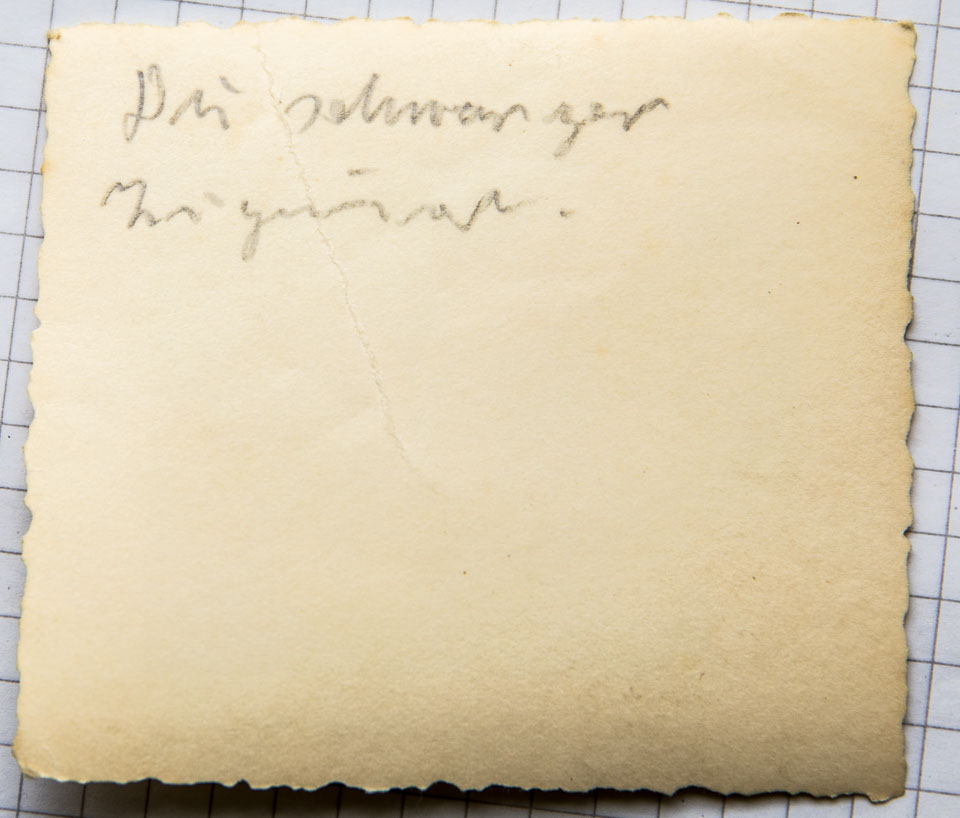 Du schwarzer
Zigeuner.